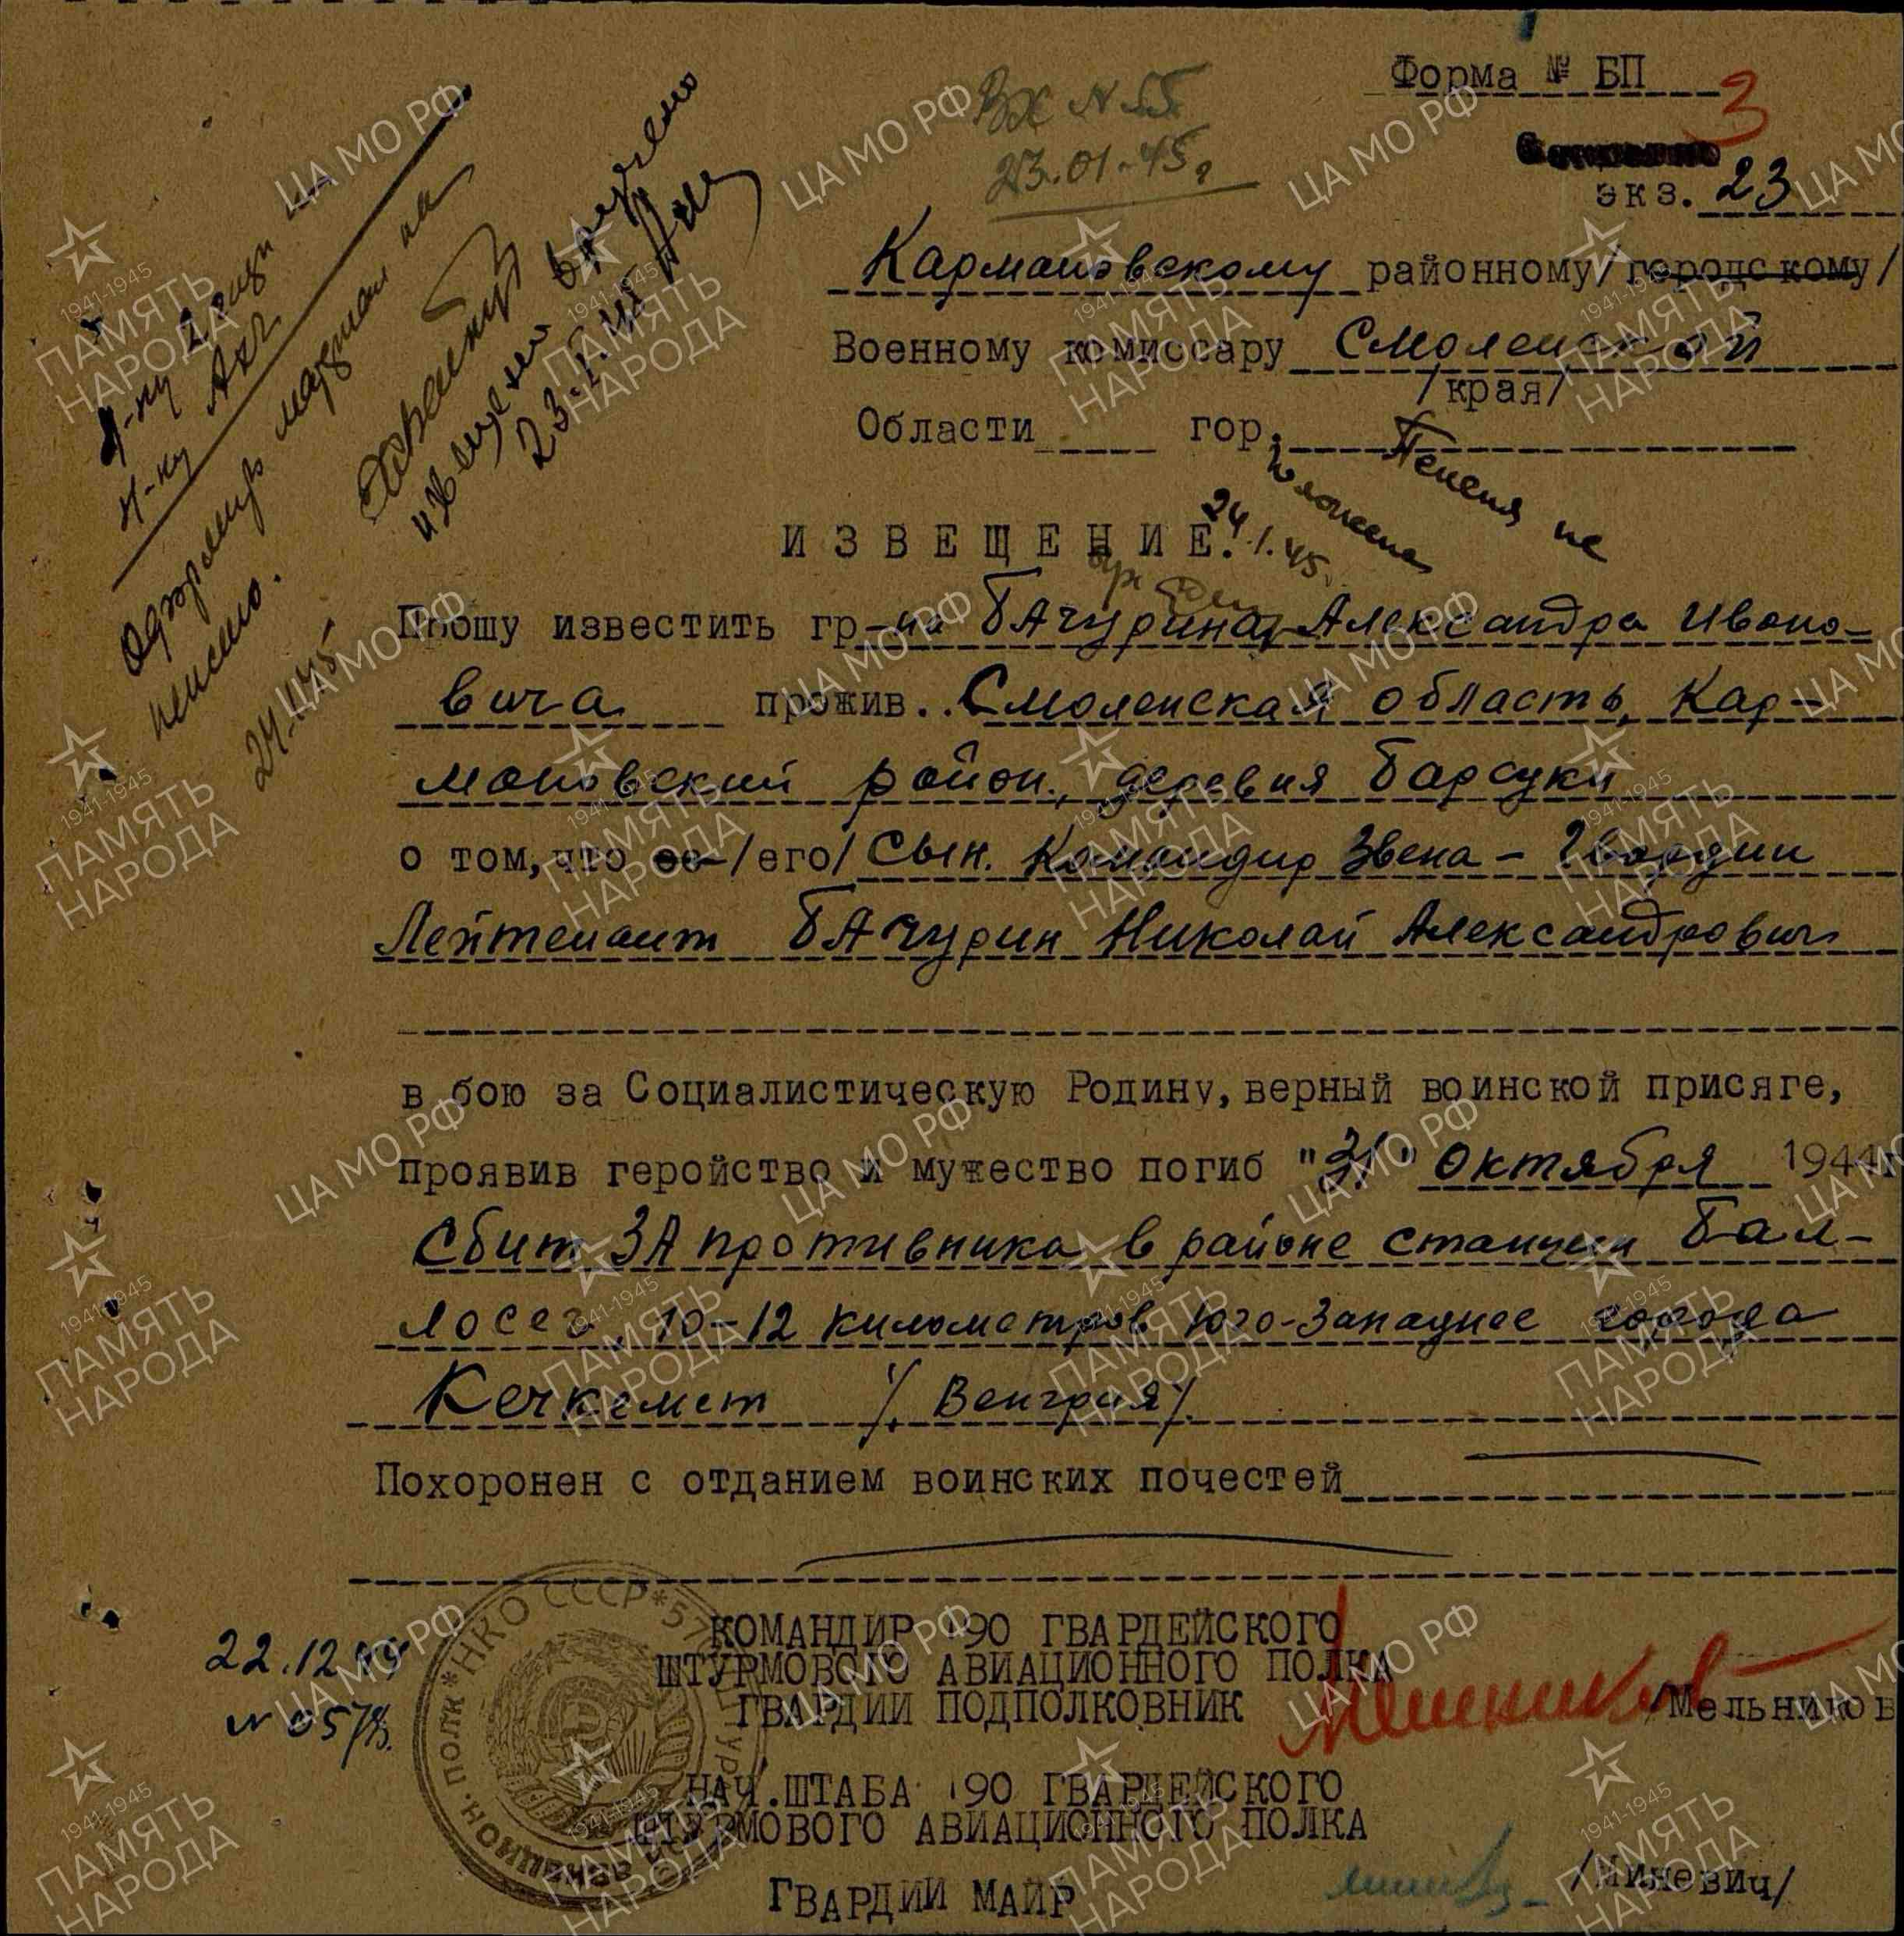 Форма № БП
3
Вх N 55
23.01.45г
экз. 23
Кармановскому районному/городскому/
Военному комиссару Смоленской
/края/
Области гор.
Пенсия не
24.1.45.
извещение вручено
пенсию.
ИЗВЕЩЕНИЕ.
Прошу известить гр-на БАчурина, Александра Ивано-
вича прожив.. Смоленская область, Кар-
мановский район., деревня Барсуки
о том, что ее /его/ сын. Командир Звена - Гвардии
Лейтенант БАчурин Николай Александрович
в бою за Социалистическую Родину, верный воинской присяге,
проявив геройство и мужество погиб "31" октября 1944г
Сбит ЗА противника в районе станции Бал-
лосег, 10-12 километров Юго-Западнее города
Кечкемет /Венгрия/.
Похоронен с отданием воинских почестей
22.12.44
КОМАНДИР 190 ГВАРДЕЙСКОГО
ШТУРМОВОГО АВИАЦИОННОГО ПОЛКА
ГВАРДИИ ПОДПОЛКОВНИК /Мельников
НАЧ.ШТАБА 190 ГВАРДЕЙСКОГО
ШТУРМОВОГО АВИАЦИОННОГО ПОЛКА
ГВАРДИИ МАЙР /Миневич/
НКО СССР
АВИАЦИОН. ПОЛК
ЦА МО РФ
1941-1945
ПАМЯТЬ
НАРОДА